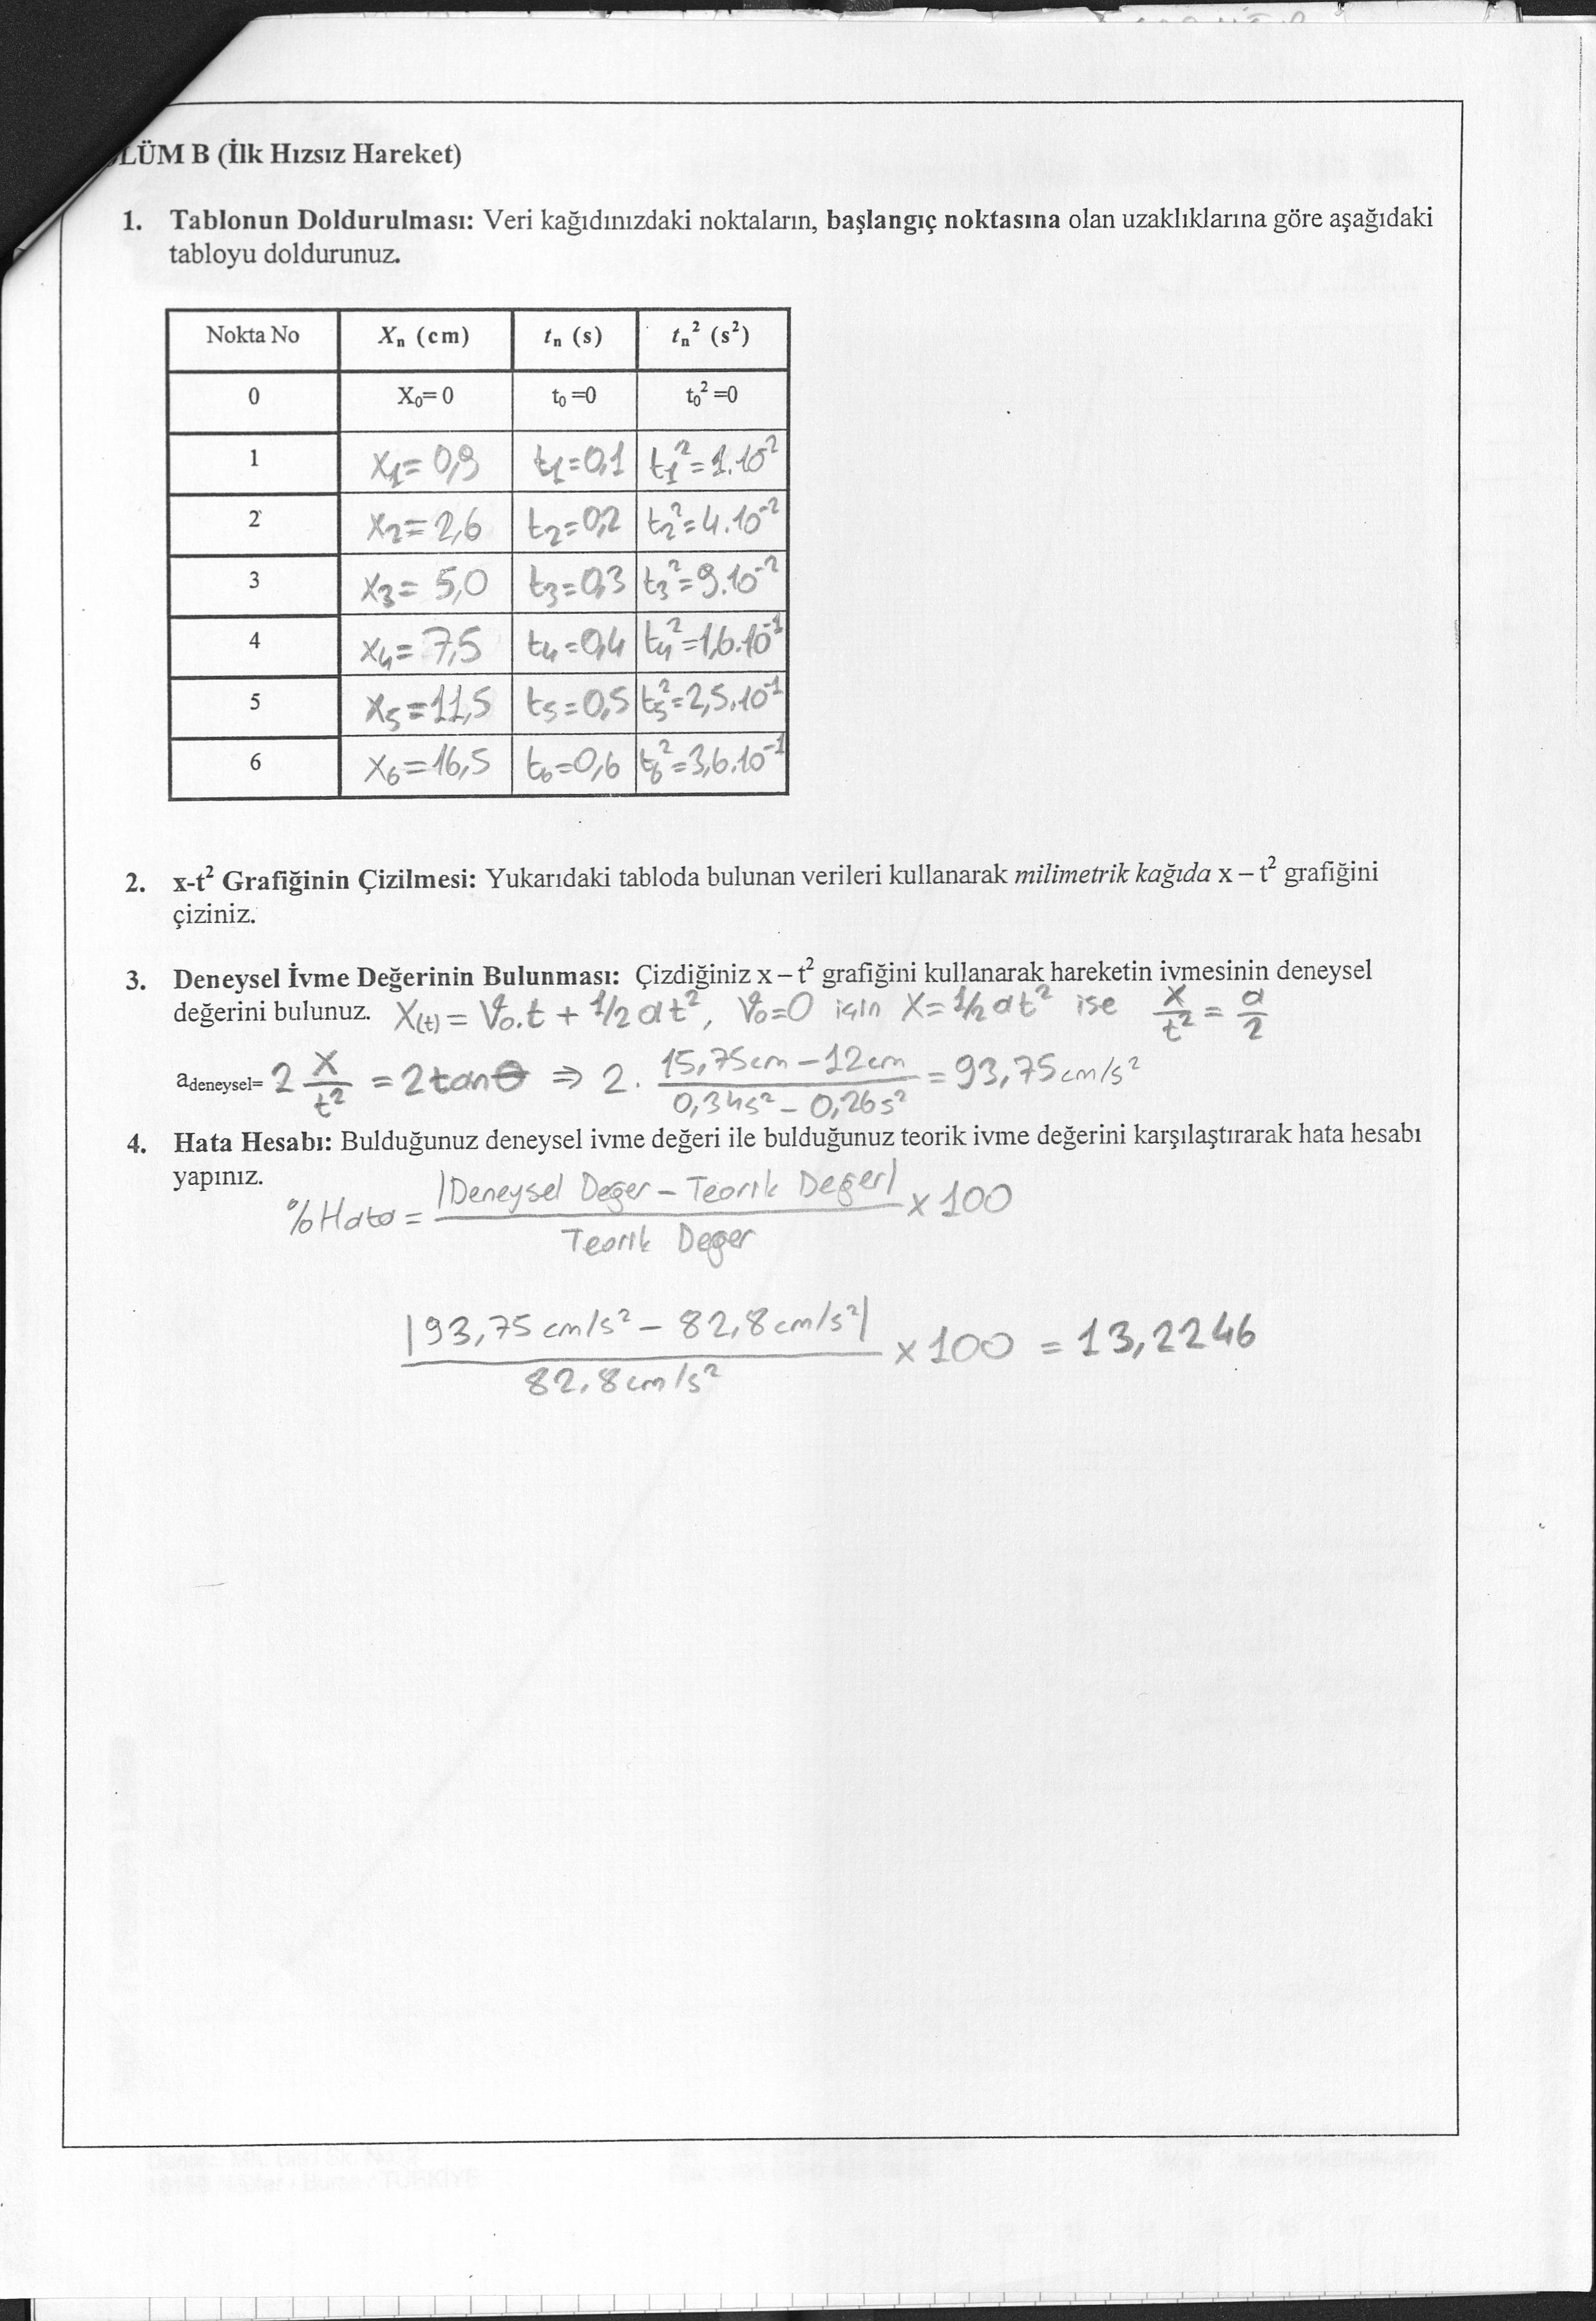 LÜM B (İlk Hızsız Hareket)
1. Tablonun Doldurulması: Veri kağıdınızdaki noktaların, başlangıç noktasına olan uzaklıklarına göre aşağıdaki
tabloyu doldurunuz.
Nokta No Xₙ (cm) tₙ (s) tₙ² (s²)
0 X₀= 0 t₀ =0 t₀² =0
1 X₁= 0,9 t₁=0,1 t₁²=1.10⁻²
2 X₂= 2,6 t₂=0,2 t₂²=4.10⁻²
3 X₃= 5,0 t₃=0,3 t₃²=9.10⁻²
4 X₄= 7,5 t₄=0,4 t₄²=1,6.10⁻¹
5 X₅=11,5 t₅=0,5 t₅²=2,5.10⁻¹
6 X₆=16,5 t₆=0,6 t₆²=3,6.10⁻¹
2. x-t² Grafiğinin Çizilmesi: Yukarıdaki tabloda bulunan verileri kullanarak milimetrik kağıda x – t² grafiğini
çiziniz.
3. Deneysel İvme Değerinin Bulunması: Çizdiğiniz x – t² grafiğini kullanarak hareketin ivmesinin deneysel
değerini bulunuz. X(t) = V₀.t + 1/2 at², V₀=0 için X= 1/2 at² ise x/t² = a/2
adeneysel= 2 x/t² = 2tanθ ⇒ 2. 15,75cm – 12cm / 0,34s² – 0,26s² = 93,75cm/s²
4. Hata Hesabı: Bulduğunuz deneysel ivme değeri ile bulduğunuz teorik ivme değerini karşılaştırarak hata hesabı
yapınız.
%Hata = |Deneysel Değer – Teorik Değer| / Teorik Değer x 100
|93,75 cm/s² – 82,8 cm/s²| / 82,8 cm/s² x 100 = 13,2246